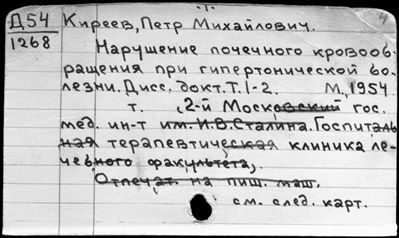 Д54
1268
Киреев, Петр Михайлович.
Нарушение почечного кровооб-
ращения при гипертонической бо-
лезни. Дисс. докт. Т.1-2. М., 1954.
т. , 2-й Московский гос.
мед. ин-т им. И.В. Сталина. Госпиталь
ная терапевтическая клиника ле-
чебного факультета,
Отпечат. на пиш. маш.
см. след. карт.